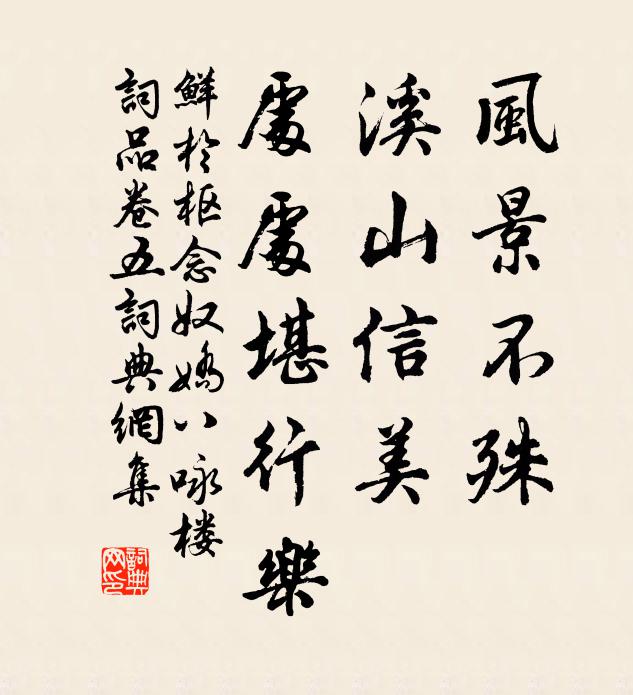 風景不殊
溪山信美
處處堪行樂
鮮於枢念奴嬌八咏楼
詞品卷五詞典網集
詞典网印